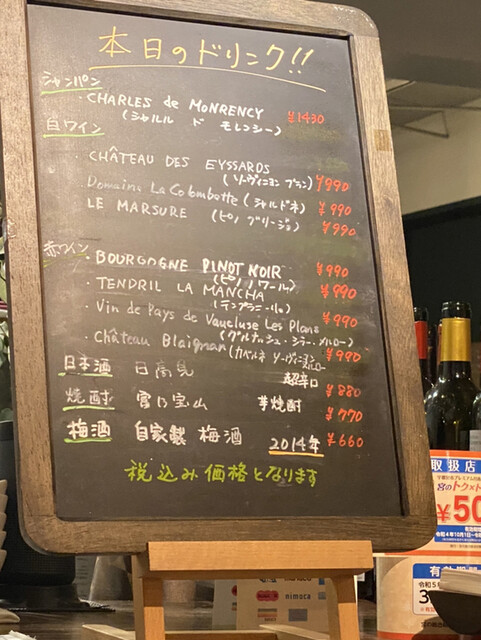 本日のドリンク!!
シャンパン
・CHARLES de MONRENCY ¥1430
(シャルル ド モレンシー)
白ワイン
・CHÂTEAU DES EYSSARDS
(ソーヴィニヨン ブラン) ¥990
Domaine La Colombette (シャルドネ) ¥990
LE MARSURE (ピノ グリージョ) ¥990
赤ワイン
・BOURGOGNE PINOT NOIR ¥990
(ピノ ノワール)
・TENDRIL LA MANCHA ¥990
(テンプラニーリョ)
・Vin de Pays de Vaucluse Les Plans ¥990
(グルナッシュ・シラー・メルロー)
・Château Blaignan (カベルネ ソーヴィニヨン メルロー ¥990
日本酒 日高見 超辛口 ¥880
焼酎 宮乃宝山 芋焼酎 ¥770
梅酒 自家製 梅酒 2014年 ¥660
税込み価格となります
取扱店
宮のトク×ト
¥50
有効期間
令和4年10月1日~
有効期
令和5年
nimoca